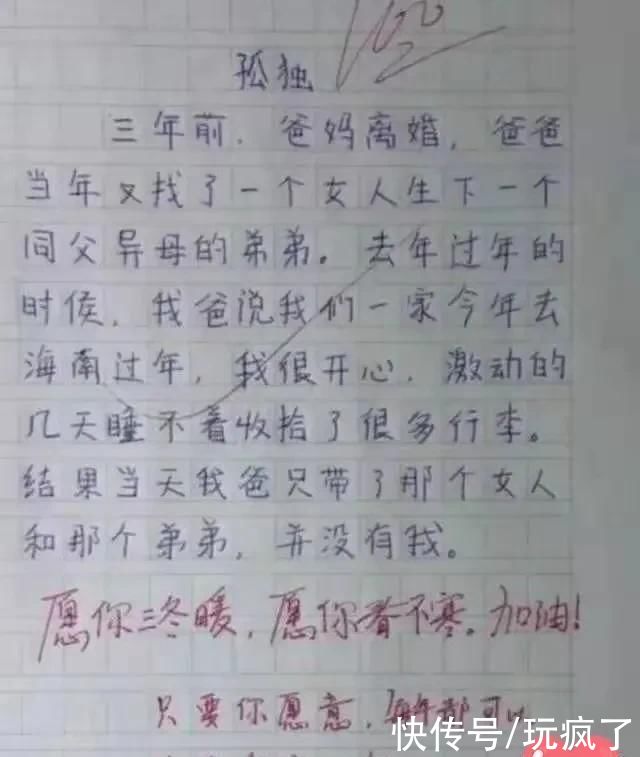 100
孤独
三年前，爸妈离婚，爸爸
当年又找了一个女人生下一个
同父异母的弟弟。去年过年的
时侯，我爸说我们一家今年去
海南过年，我很开心，激动的
几天睡不着收拾了很多行李。
结果当天我爸只带了那个女人
和那个弟弟，并没有我。
愿你三冬暖，愿你春不寒。加油!
只要你愿意，每年都可以
快传号/玩疯了